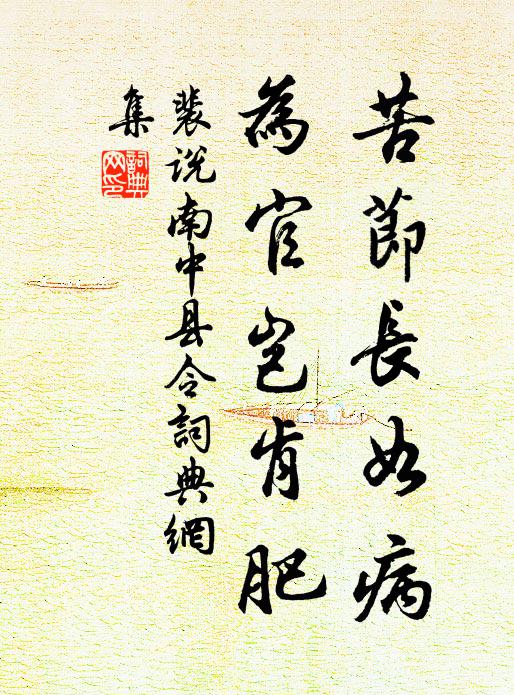 苦節長如病
為官豈肯肥
裴說南中县令詞典網
集
詞典
网印